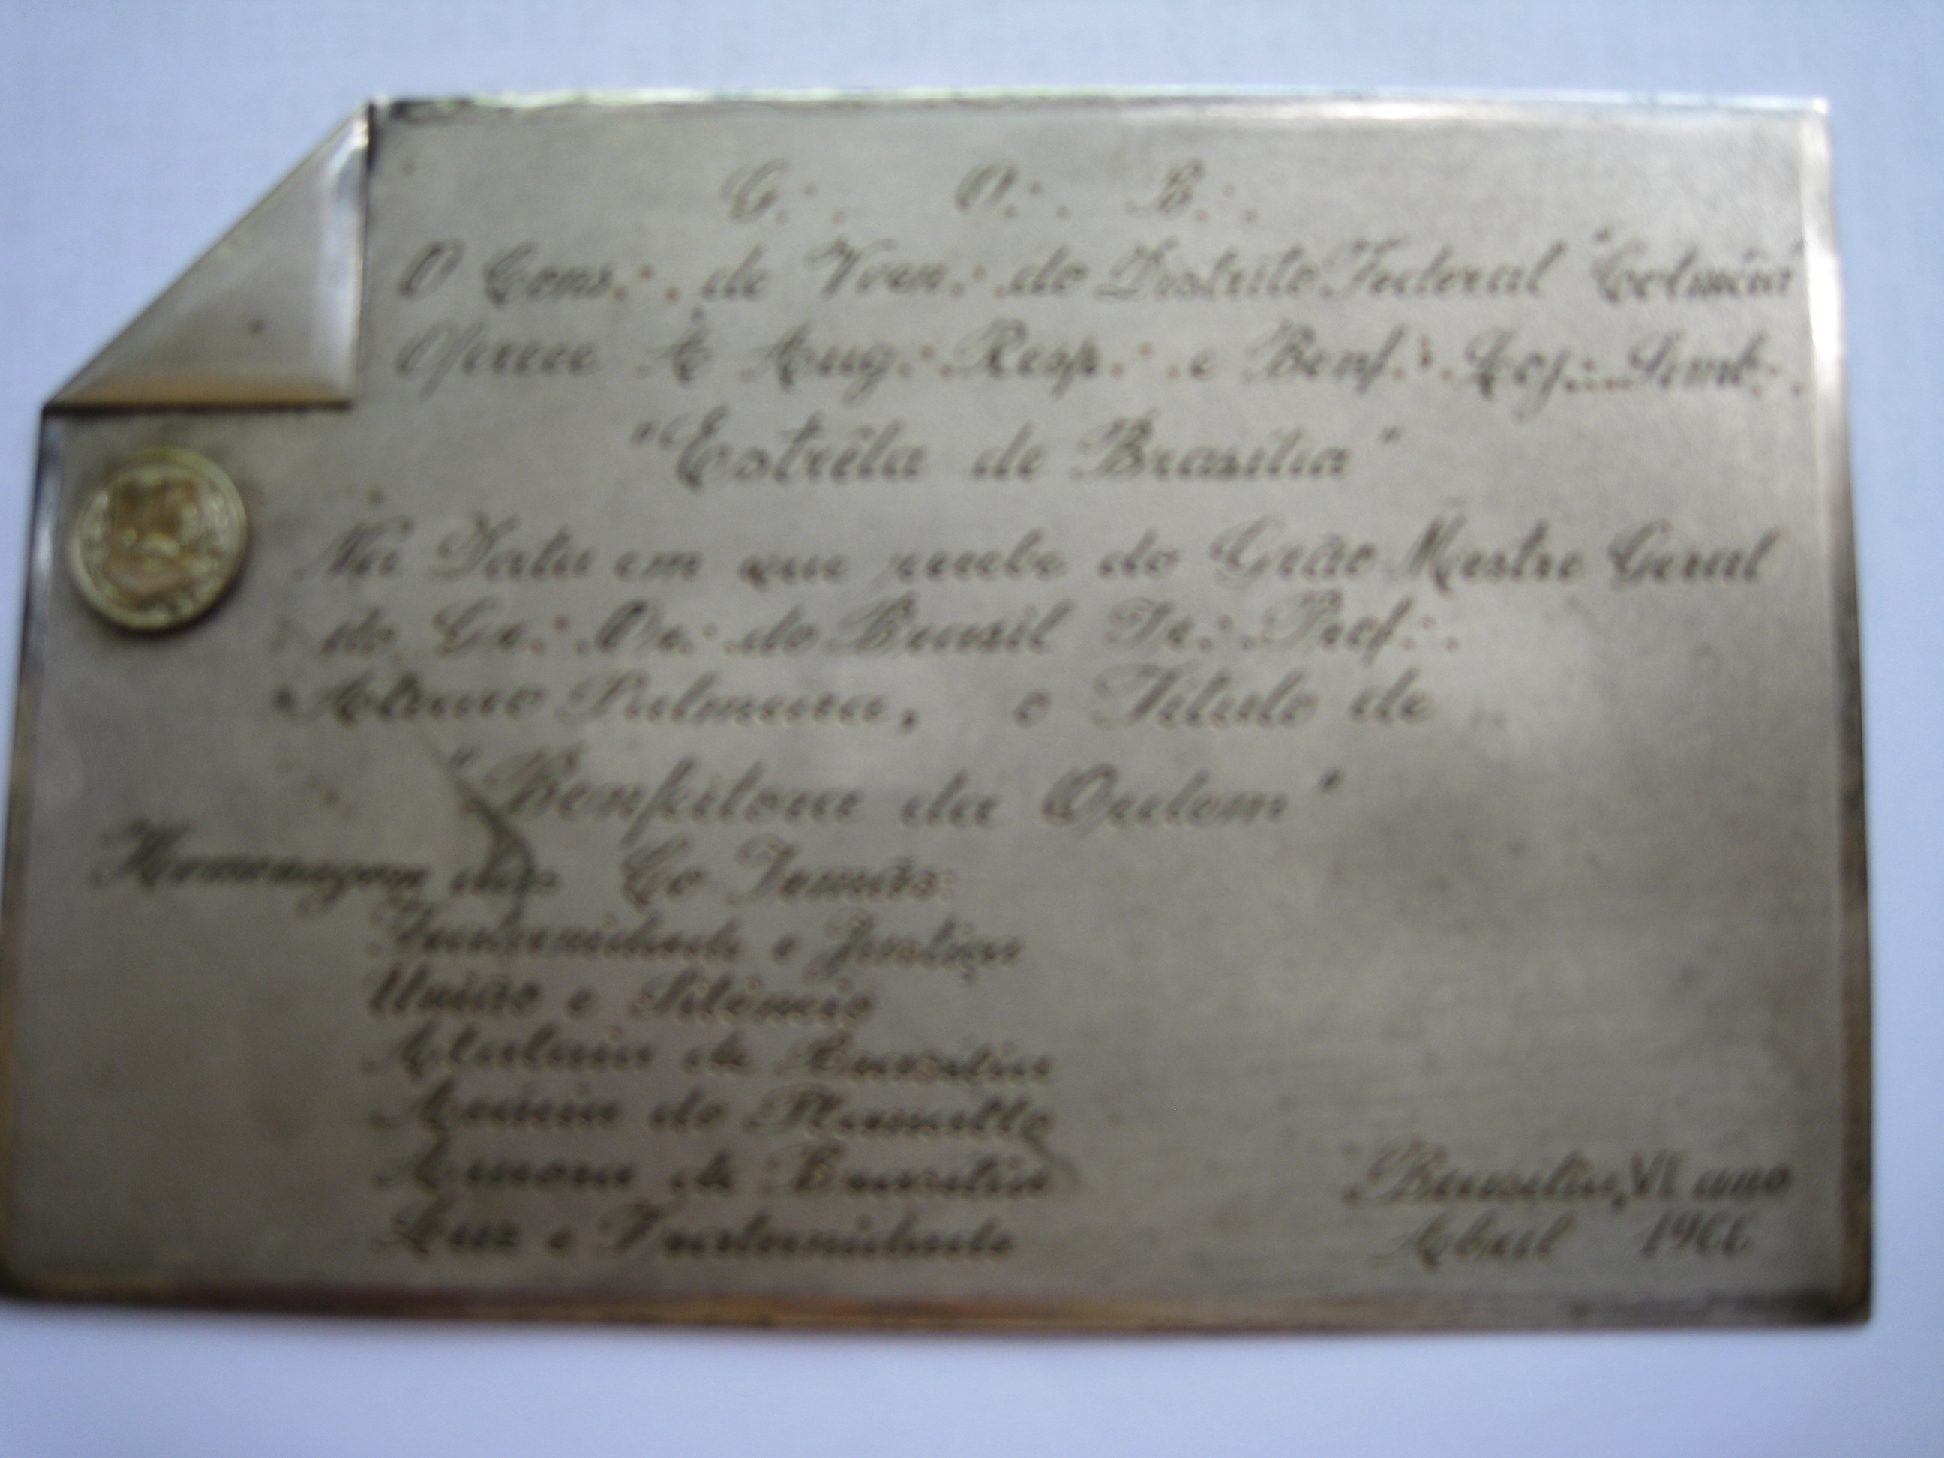 G∴ O∴ B∴
O Cons∴ de Ven∴ do Distrito Federal "Colméia"
Oferece A Aug∴ Resp∴ e Benf∴ Loj∴ Simb∴
"Estrêla de Brasília"
Na Data em que recebe do Grão Mestre Geral
do Gr∴ Or∴ do Brasil Ir∴ Prof∴
Alvaro Palmeira, o Título de
"Benfeitora da Ordem"
Homenagem das Co-Irmãs:
Fraternidade e Justiça
União e Silêncio
Atalaia de Brasília
Acácia do Planalto
Aurora de Brasília
Luz e Fraternidade
Brasília, VI ano
Abril 1966